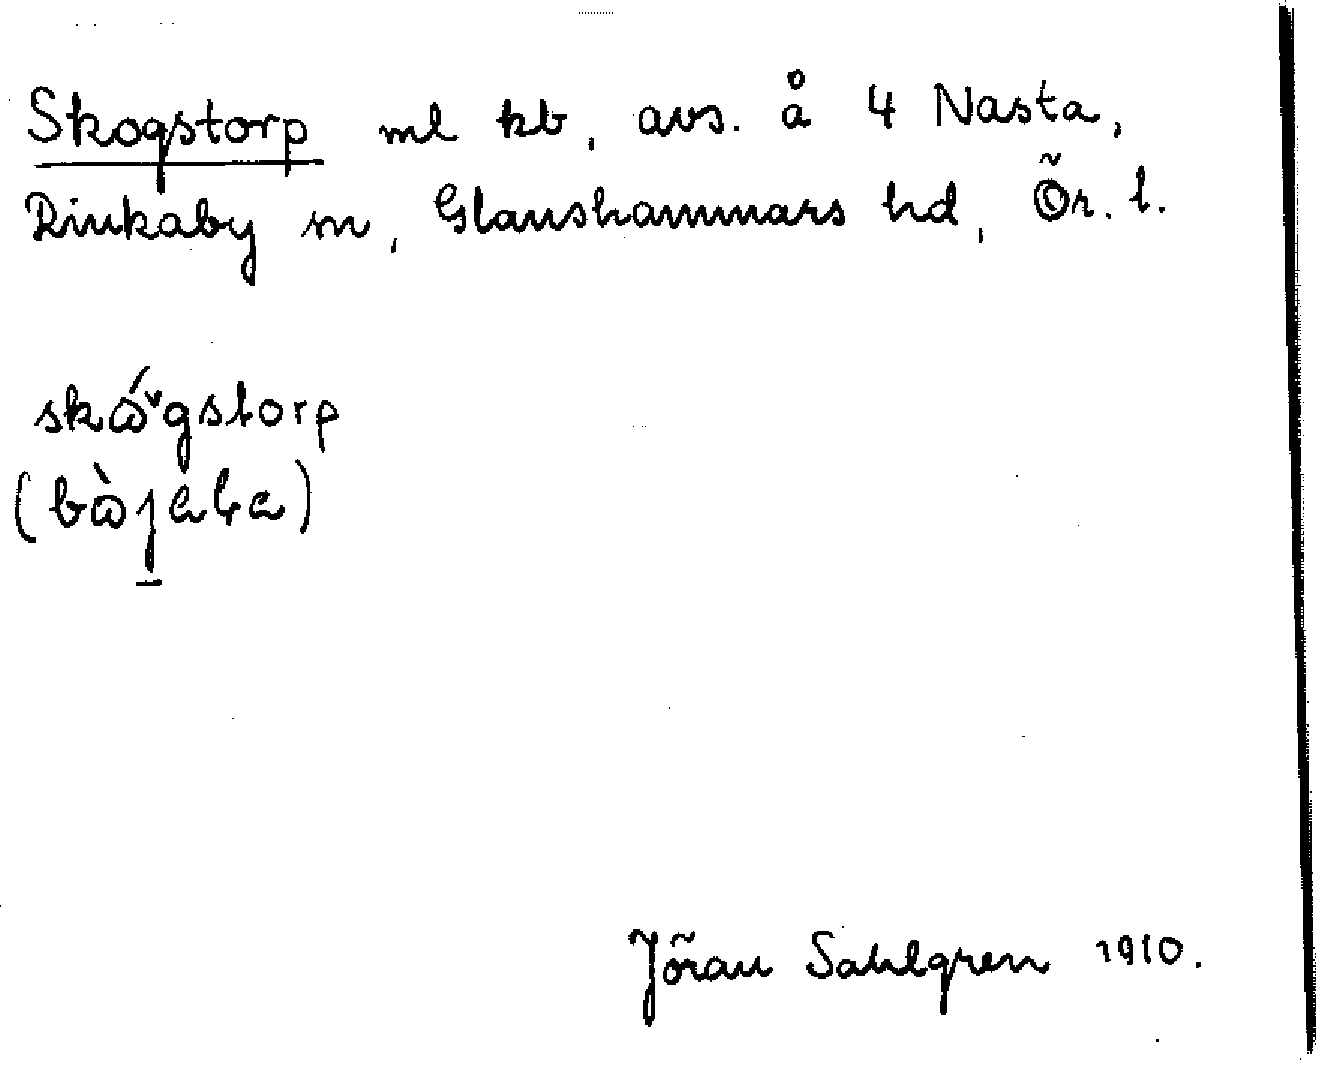 Skogstorp ml kb, avs. å 4 Nasta,
Rinkaby sn, Glanshammars hd, Ör. l.
skɷ́ᵛgstorp
(bɷ̀jȧɫa)
Jöran Sahlgren 1910.